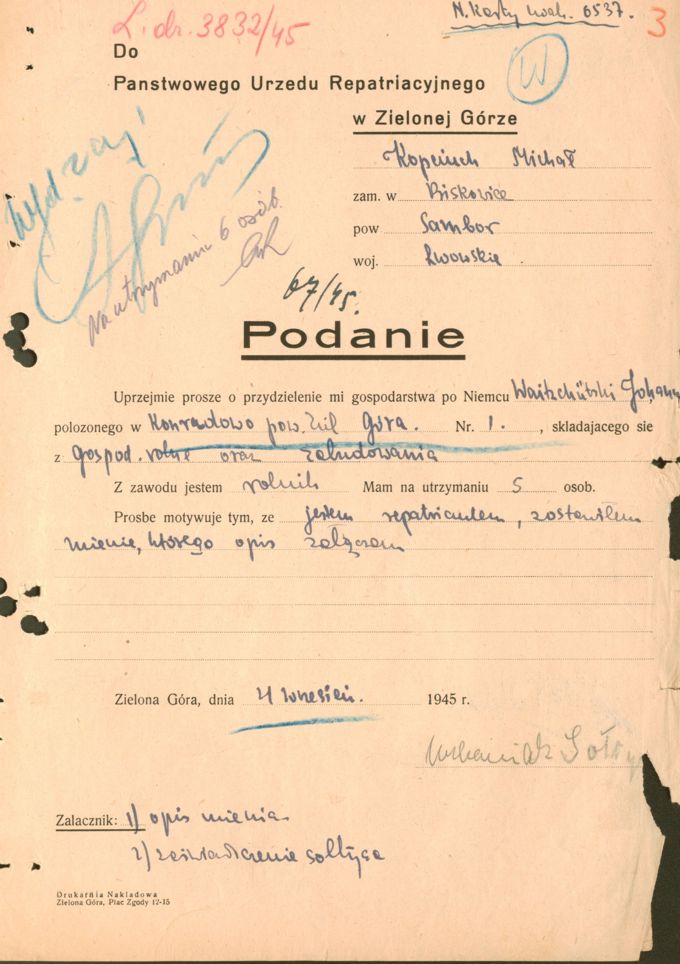 L. dr. 3832/45
N. Karty ewak. 6537.
3
Do
Panstwowego Urzedu Repatriacyjnego
W
w Zielonej Górze
Kopciuch Michał
zam. w Biskowice
pow Sambor
woj. Lwowskie
Na utrzymaniu 6 osób.
67/45.
Podanie
Uprzejmie prosze o przydzielenie mi gospodarstwa po Niemcu
polozonego w Konradowo pow. Ziel Góra. Nr. 1. , skladajacego sie
z gospod. rolne oraz zabudowania
Z zawodu jestem rolnik Mam na utrzymaniu 5 osob.
Prosbe motywuje tym, ze jestem repatriantem, zostawiłem
mienie, którego opis załączam
Zielona Góra, dnia 4 wrzesień. 1945 r.
Zalacznik: 1) opis mienia
2) zaświadczenie sołtysa
Drukarnia Nakladowa
Zielona Góra, Plac Zgody 12-15